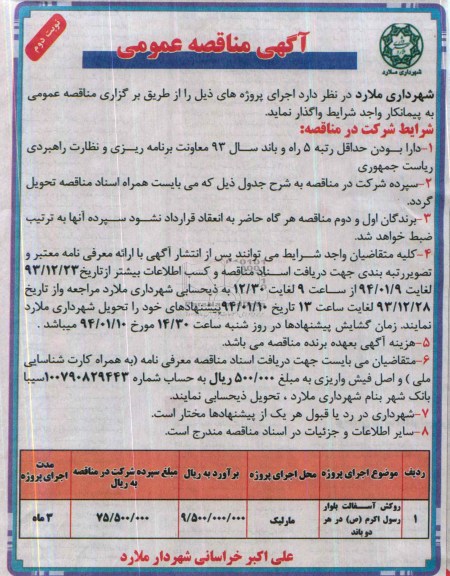 نوبت دوم
آگهی مناقصه عمومی
شهرداری ملارد
شهرداری ملارد در نظر دارد اجرای پروژه های ذیل را از طریق بر گزاری مناقصه عمومی
به پیمانکار واجد شرایط واگذار نماید.
شرایط شرکت در مناقصه:
۱-دارا بودن حداقل رتبه ۵ راه و باند سال ۹۳ معاونت برنامه ریزی و نظارت راهبردی
ریاست جمهوری
۲-سپرده شرکت در مناقصه به شرح جدول ذیل که می بایست همراه اسناد مناقصه تحویل
گردد.
۳-برندگان اول و دوم مناقصه هر گاه حاضر به انعقاد قرارداد نشود سپرده آنها به ترتیب
ضبط خواهد شد.
۴-کلیه متقاضیان واجد شرایط می توانند پس از انتشار آگهی با ارائه معرفی نامه معتبر و
تصویررتبه بندی جهت دریافت اسناد مناقصه و کسب اطلاعات بیشتر ازتاریخ۹۳/۱۲/۲۳
لغایت ۹۴/۰۱/۹ از ساعت ۹ لغایت ۱۲/۳۰ به ذیحسابی شهرداری ملارد مراجعه واز تاریخ
۹۳/۱۲/۲۸ لغایت ساعت ۱۳ تاریخ ۹۴/۰۱/۱۰پیشنهادهای خود را تحویل شهرداری ملارد
نمایند. زمان گشایش پیشنهادها در روز شنبه ساعت ۱۴/۳۰ مورخ ۹۴/۰۱/۱۰ میباشد .
۵-هزینه آگهی بعهده برنده مناقصه می باشد.
۶-متقاضیان می بایست جهت دریافت اسناد مناقصه معرفی نامه (به همراه کارت شناسایی
ملی ) و اصل فیش واریزی به مبلغ ۵۰۰/۰۰۰ ریال به حساب شماره ۱۰۰۷۹۰۸۲۹۴۴۳سیبا
بانک شهر بنام شهرداری ملارد ، تحویل ذیحسابی نمایند.
۷-شهرداری در رد یا قبول هر یک از پیشنهادها مختار است.
۸-سایر اطلاعات و جزئیات در اسناد مناقصه مندرج است.
ردیف موضوع اجرای پروژه محل اجرای پروژه برآورد به ریال مبلغ سپرده شرکت در مناقصه به ریال مدت اجرای پروژه
۱ روکش آسفالت بلوار رسول اکرم (ص) در هر دو باند مارلیک ۹/۵۰۰/۰۰۰/۰۰۰ ۷۵/۵۰۰/۰۰۰ ۳ ماه
علی اکبر خراسانی شهردار ملارد